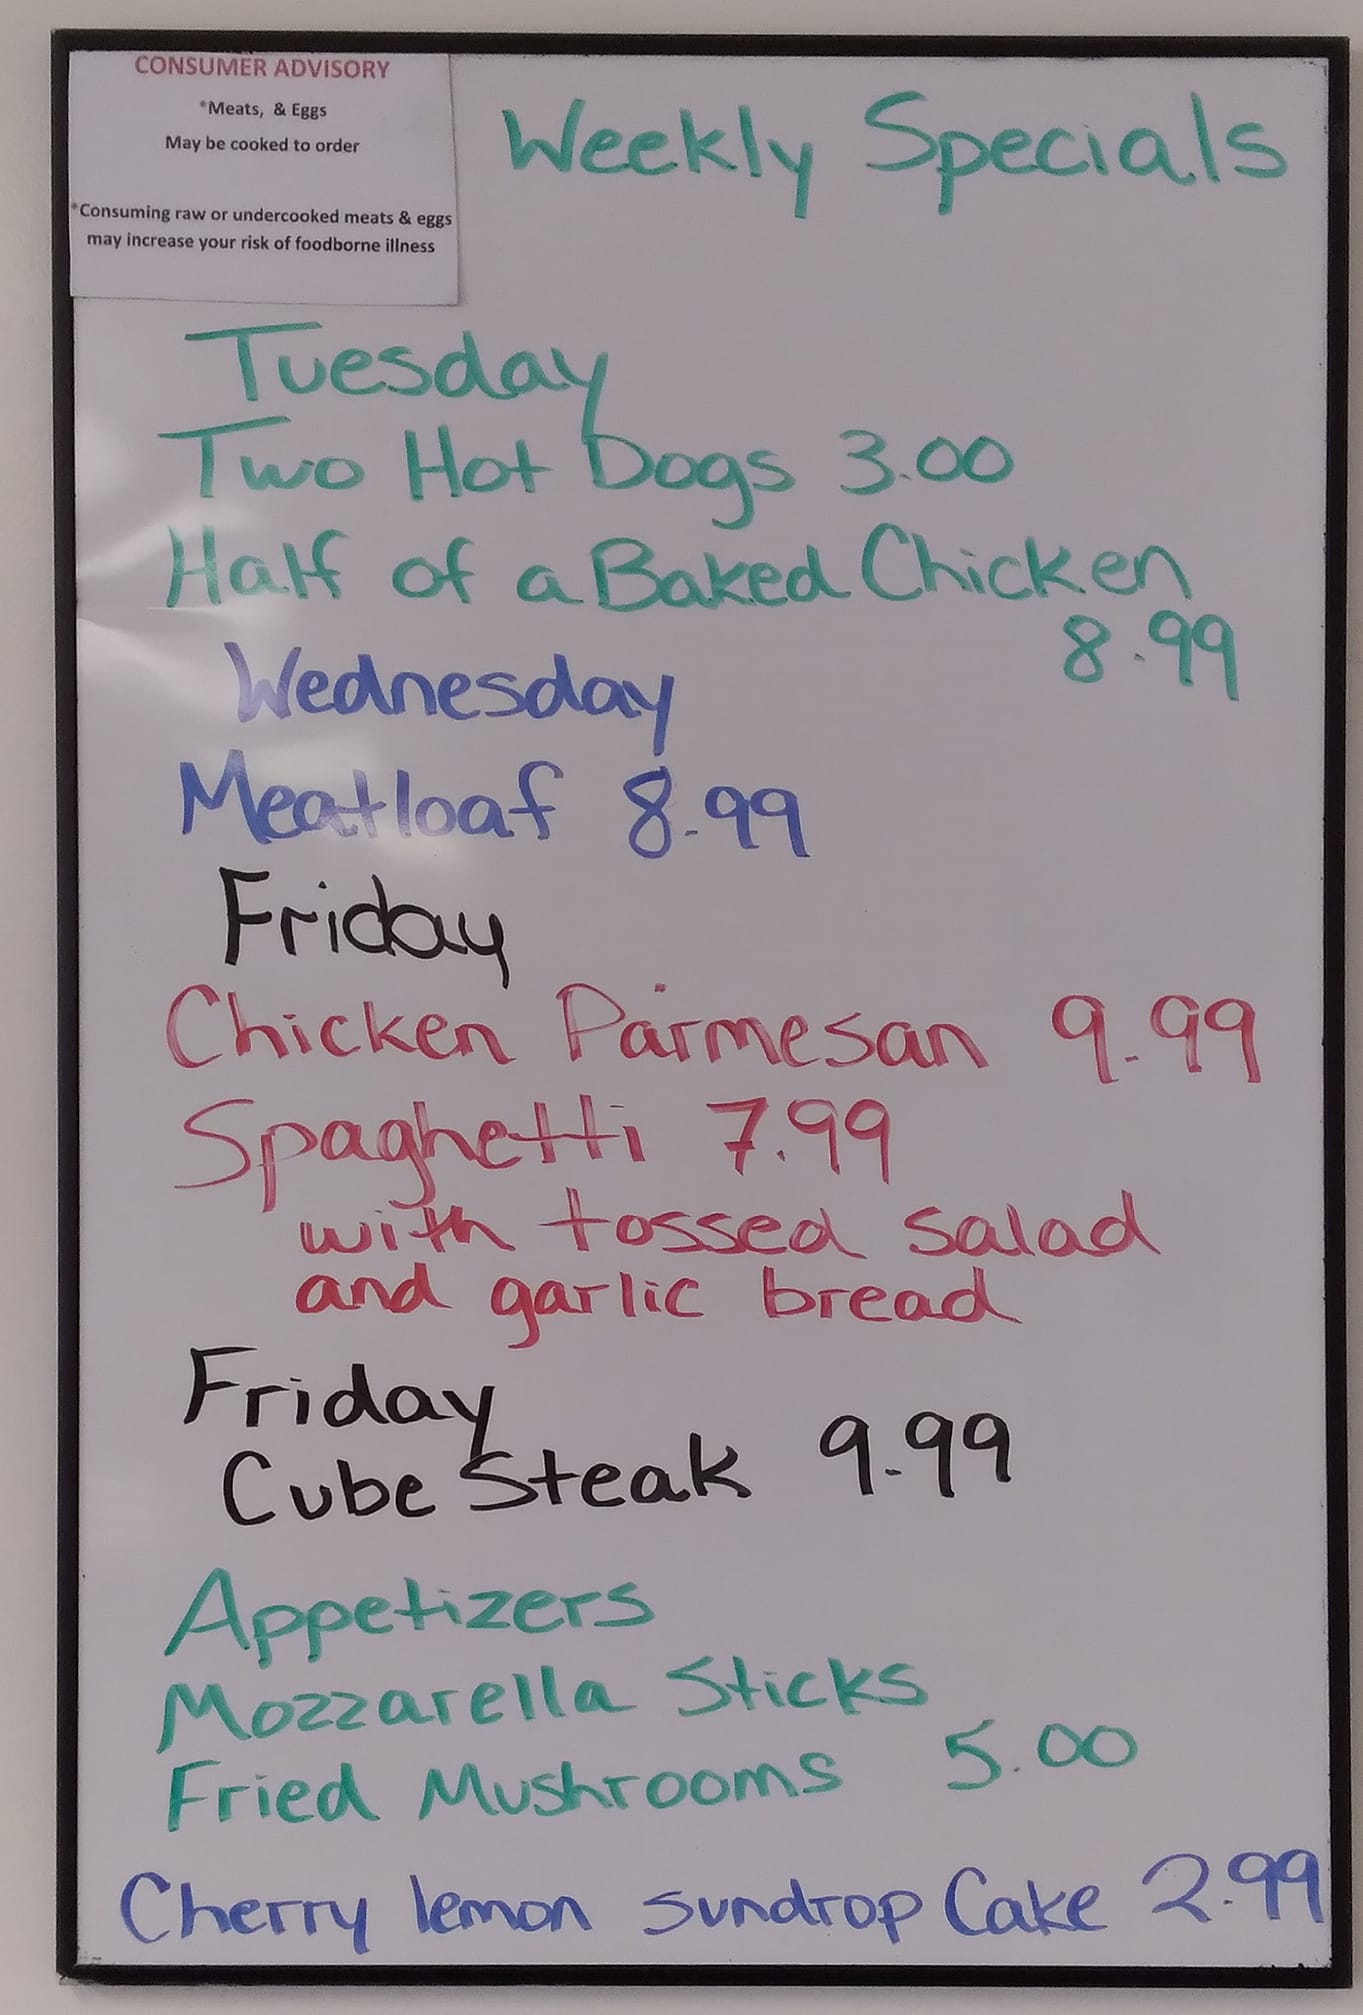 CONSUMER ADVISORY
*Meats, & Eggs
May be cooked to order
*Consuming raw or undercooked meats & eggs
may increase your risk of foodborne illness
Weekly Specials
Tuesday
Two Hot Dogs 3.00
Half of a Baked Chicken
8.99
Wednesday
Meatloaf 8.99
Friday
Chicken Parmesan 9.99
Spaghetti 7.99
with tossed salad
and garlic bread
Friday
Cube Steak 9.99
Appetizers
Mozzarella Sticks
Fried Mushrooms 5.00
Cherry lemon sundrop Cake 2.99